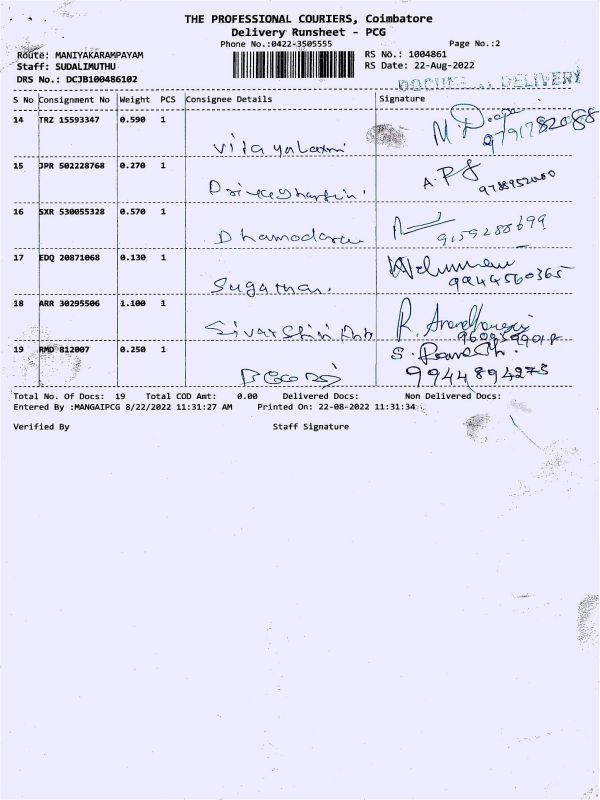 THE PROFESSIONAL COURIERS, Coimbatore
Delivery Runsheet - PCG
Phone No.:0422-3505555 Page No.:2
Route: MANIYAKARAMPAYAM RS No.: 1004861
Staff: SUDALIMUTHU RS Date: 22-Aug-2022
DRS No.: DCJB100486102
DELIVERY
S No Consignment No Weight PCS Consignee Details Signature
14 TRZ 15593347 0.590 1
Vijayalaxmi
15 JPR 502228768 0.270 1
9788952000
16 SXR 530055328 0.570 1
Dhamodaran 9159288699
17 EDQ 20871068 0.130 1
Sugathan. 9944560365
18 ARR 30295506 1.100 1
19 RMD 812007 0.250 1
9944894273
Total No. Of Docs: 19 Total COD Amt: 0.00 Delivered Docs: Non Delivered Docs:
Entered By :MANGAIPCG 8/22/2022 11:31:27 AM Printed On: 22-08-2022 11:31:34
Verified By Staff Signature